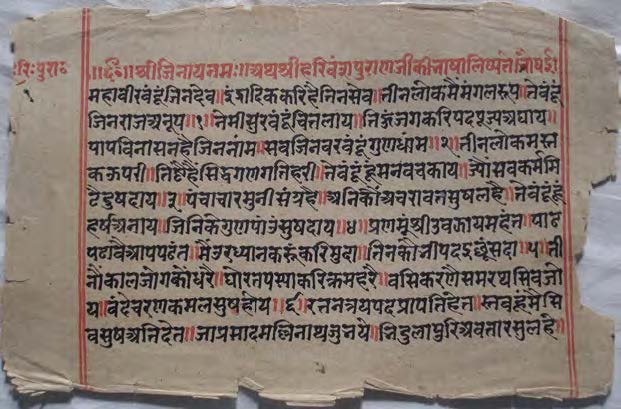 रिःपुराठ
॥६०॥श्रीजिनायनमः॥अथश्रीहरिवंशपुराणजीकीभाषालिष्यतेचौपई॥
महावीरवंदूंजिनदेव॥इंद्रादिककरिहैजिनसेव॥तीनलोकमैंमंगलरूप॥तेवंदूं
जिनराजअनूप॥१॥नेमीसुरवंदूंचितलाय॥तिहूंजगकरिपदपूज्यअघाय॥
पापविनासनहैजिननांम॥सबजिनवरवंदूंगुणधांम॥२॥तीनलोकमस्त
कऊपरी॥तिष्ठेहैंसिद्धगुणगतिहरी॥तेवंदूंहूंमनवचकाय॥ज्यौंसवकर्ममि
टैदुषदाय॥३॥पंचाचारमुनीसंग्रहै॥अनिकौंअचरावनसुषलहै॥तेवंदूंहूं
हर्षअनाय॥जिनिकेगुणपांऊंसुषदाय॥४॥प्रणमूंश्रीउवझायमहंत॥पाठ
पढावैआपपढंत॥
नौंकालजोगकौंधरै॥घोरतपस्याकरिक्रमहरै॥वसिकरणैसमरथसिवजो
य॥वंदेचरणकमलसुषहोय॥६॥रतनत्रयपदप्रापतिहेत॥स्तवहूंमेसि
वसुषअतिदेत॥जाप्रसादमल्लिनाथजुनये॥मिथुलापुरिअवतारसुलहे॥